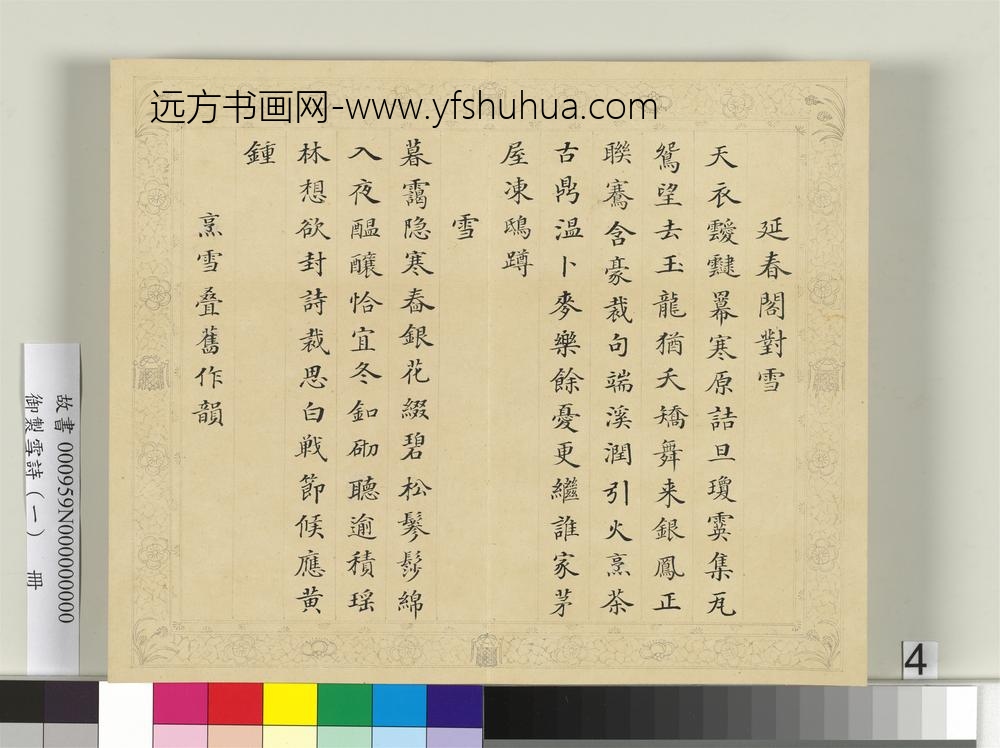 远方书画网-www.yfshuhua.com
延春閣對雪
天衣靉靆羃寒原詰旦瓊霙集瓦
鴛望去玉龍猶夭矯舞来銀鳳正
聯騫含豪裁句端溪潤引火烹茶
古鼎温卜麥樂餘憂更繼誰家茅
屋凍鴟蹲
雪
暮靄隐寒舂銀花綴碧松鬖髿綿
入夜醖釀恰宜冬釦砌聽逾積瑶
林想欲封詩裁思白戦節候應黄
鍾
烹雪叠舊作韻
故書 000959N000000000
御製雪詩(一) 冊
4